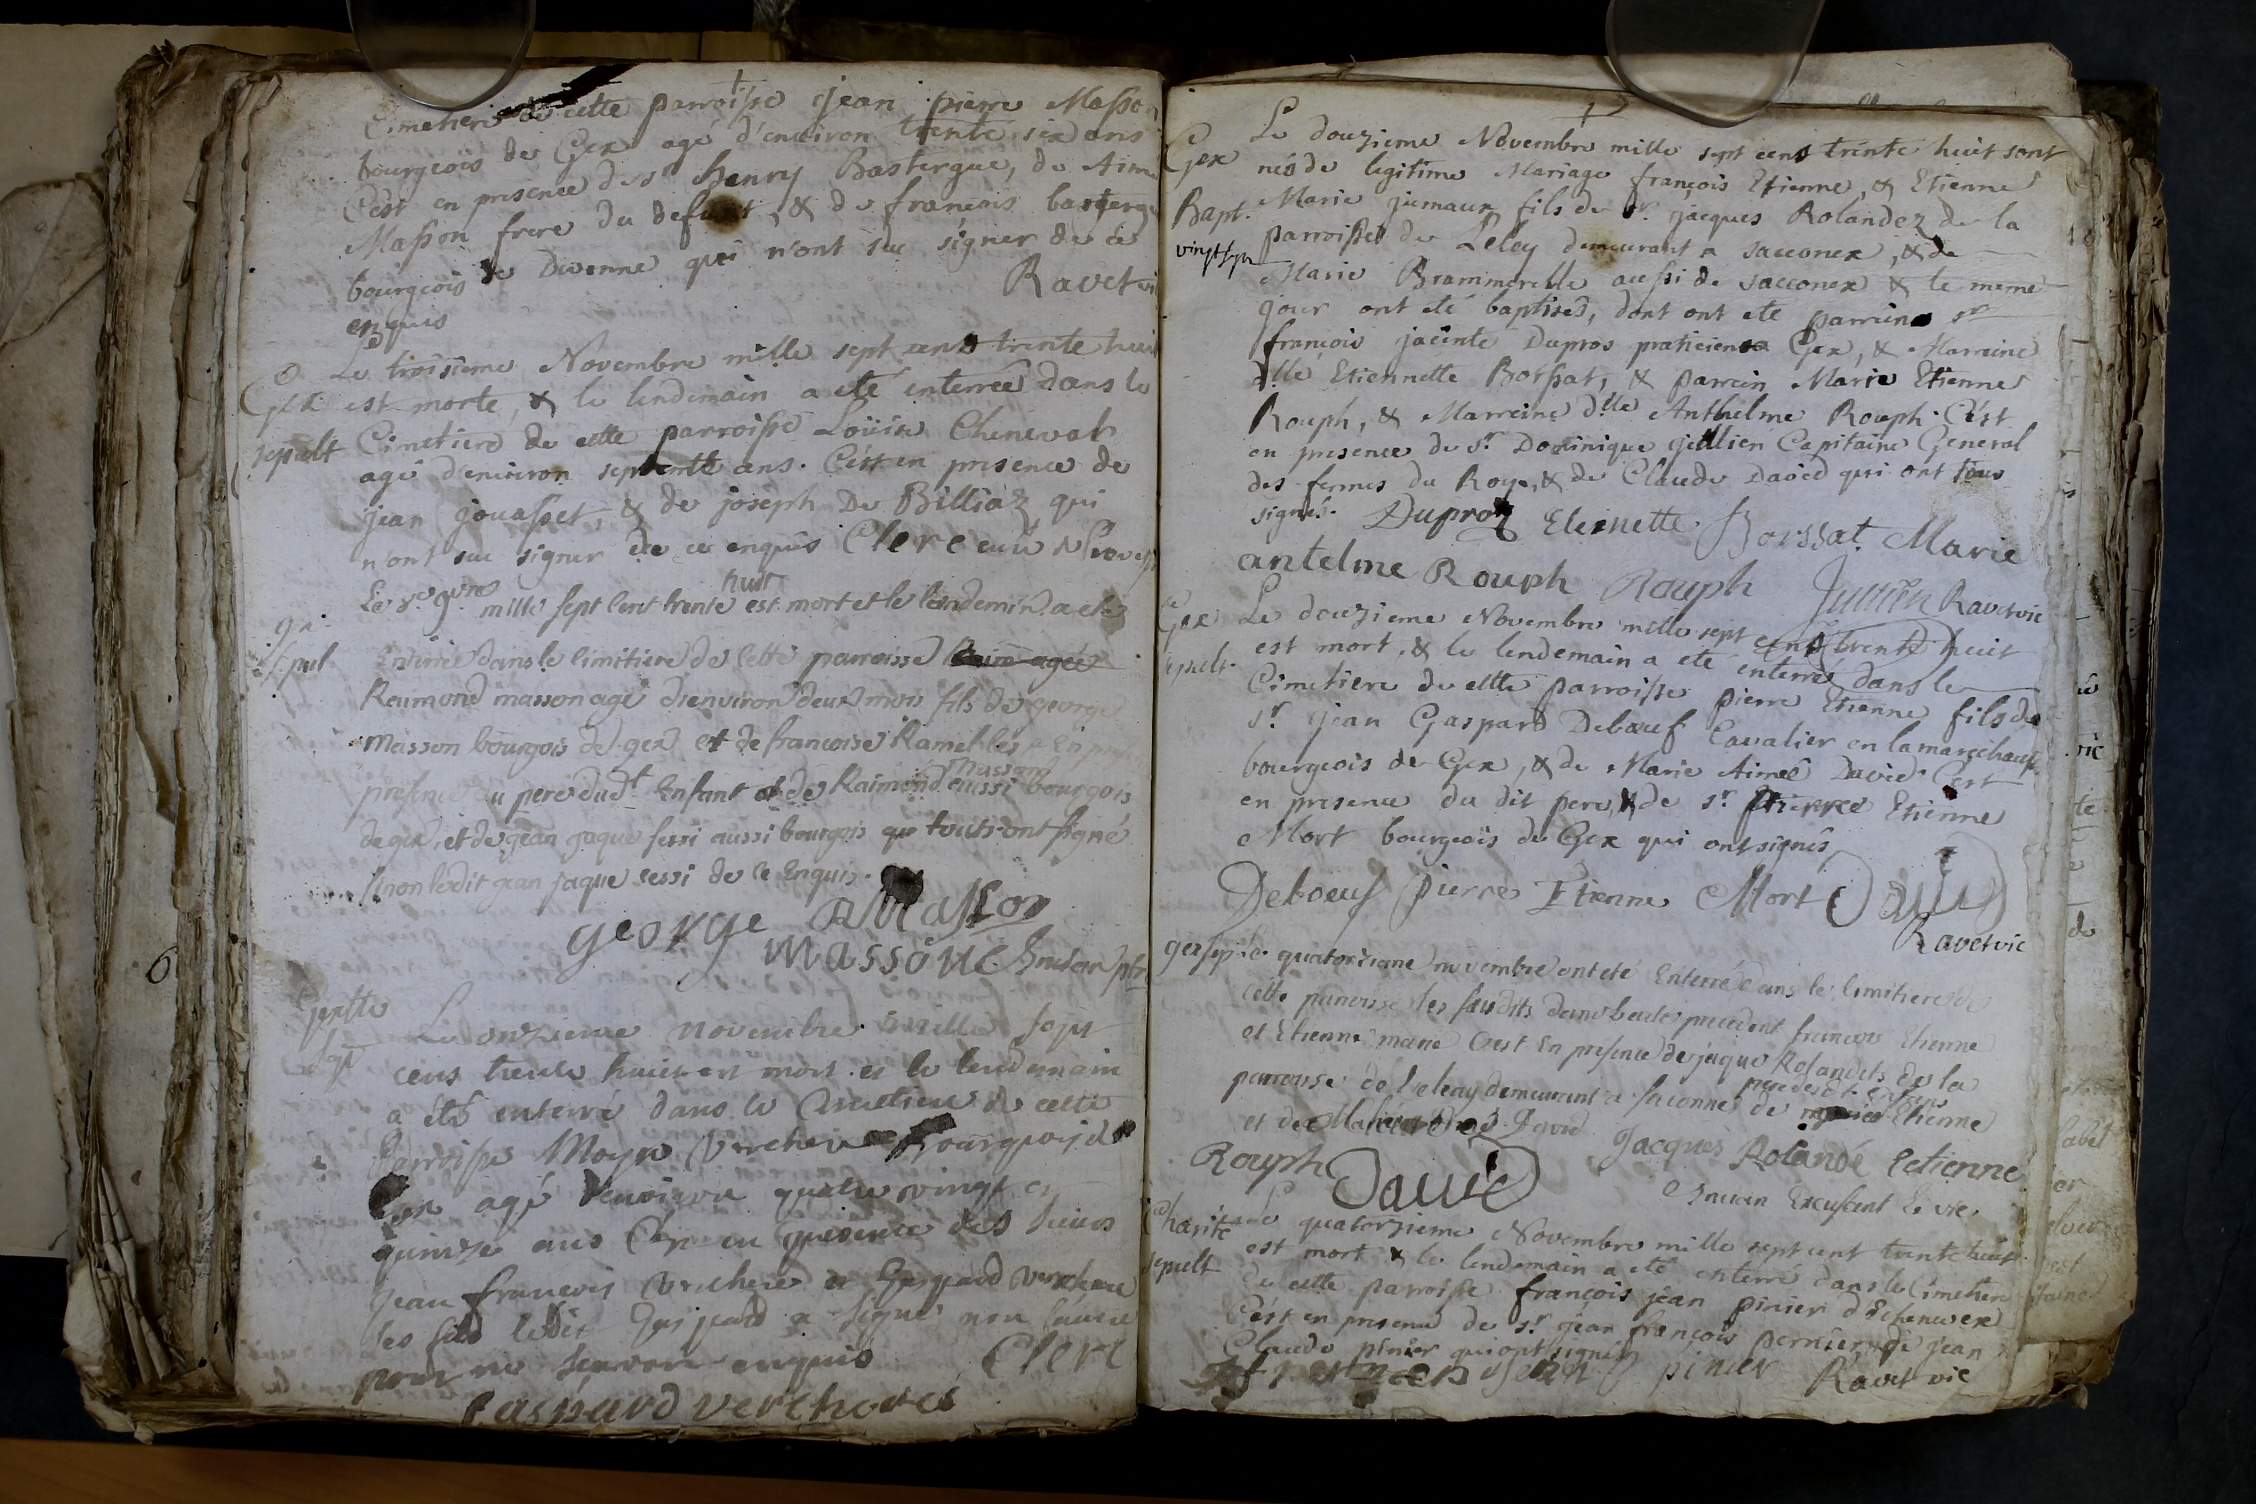 Cimetiere de cette parroisse jean pierre Masson
bourgeois de Gex agé d'environ trente six ans
C'est en presence de sr henry Bastergue, de Aimé
Masson frere du defunt, & de francois basterg
bourgeois de Divonne qui n'ont scu signer de ce
enquis Ravet vi
Gex
sepult
Le troisieme Novembre mille sept cens trente huit
est morte, & le lendemain a eté enterrée dans le
Cimetiere de cette parroisse Loüise Chenevat
agé d'environ septente ans. C'est en presence de
jean jouasset, & de joseph De Billiaz qui
n'ont scu signer de ce enquis Clerc curé
gex
sepul
Le 8e 9bre mille sept cent trente huit est mort et le lendemin a ete
Enterré dans le cimitiere de cette parroisse
Raimond masson agé d'environ deux mois fils de george
masson bourgois de gex et de francoise Ramel
presence du pere dudt Enfant et de Raimond masson aussi bourgois
de gex, et de jean jaque sessi aussi bourgois qui touts ont signé
sinon ledit jean jaque sessi de ce Enquis.
george R Masson
masson
Le onzieme novembre mille sept
cens trente huit est mort et le lendemain
a été enterré dans le Cimetiere de cette
Parroisse Moyse Verchere Bourgeois de
Gex agé d'environ quatre vingt et
quinze ans C'est en presence des sieurs
jean francois Verchere et Gaspard Verchere
les fils ledit Gaspard a signé non l'autre
pour ne scavoir enquis Clerc
Gaspard verchere
Gex
Bapt.
vingt sept
Le douzieme Novembre mille sept cens trente huit sont
nés de legitime Mariage françois Etienne, & Etienne
Marie jumaux fils de sr. jacques Rolandez de la
parroisse de Leley demeurant a sacconex, & de
Marie Brammerelle aussi de sacconex & le meme
jour ont eté baptisés, dont ont ete parrein sr
françois jacinte Dupros praticien Gex, & Marreine
dlle Etiennette Borssat, & parrein Marie Etienne
Rouph, & Marreine dlle Anthelme Rouph. C'est
en presence de sr. Dominique jullien Capitaine General
des fermes du Roy, & de Claude David qui ont tous
signés. Duproz Etiennette Borssat Marie
antelme Rouph Rouph Jullien Ravet vic
Gex
sepult.
Le douzieme Novembre mille sept cens trente huit
est mort, & le lendemain a eté enterré dans le
Cimetiere de cette parroisse pierre Etienne fils de
sr jean Gaspard Debœuf Cavalier en la marechaussé
bourgeois de Gex, & de Marie Aimeé David. C'est
en presence du dit pere, & de sr. pierre Etienne
Mort bourgeois de Gex qui ont signés
Deboeuf pierre Etienne Mort David
Ravet vic
gex sep. le quatorzieme novembre ont eté Enterré dans le cimitiere de
cette parroisse les susdits precedent francois Etienne
et Etienne marie C'est En presence de jaque Rolandets de la
parroisse de Leleay demeurant a saconne pere desdt Enfans de Etienne
et de David
Jacques Rolandé Eetienne
Rouph David
Charite
sepult
Le quatorzieme Novembre mille sept cent trente huit
est mort & le lendemain a eté enterré dans le Cimetiere
de cette parroisse françois jean pinier d'Echenevex
C'est en presence de sr. jean françois pernier, & de jean
Claude pinier qui ont signés
jean pinier Ravet vic